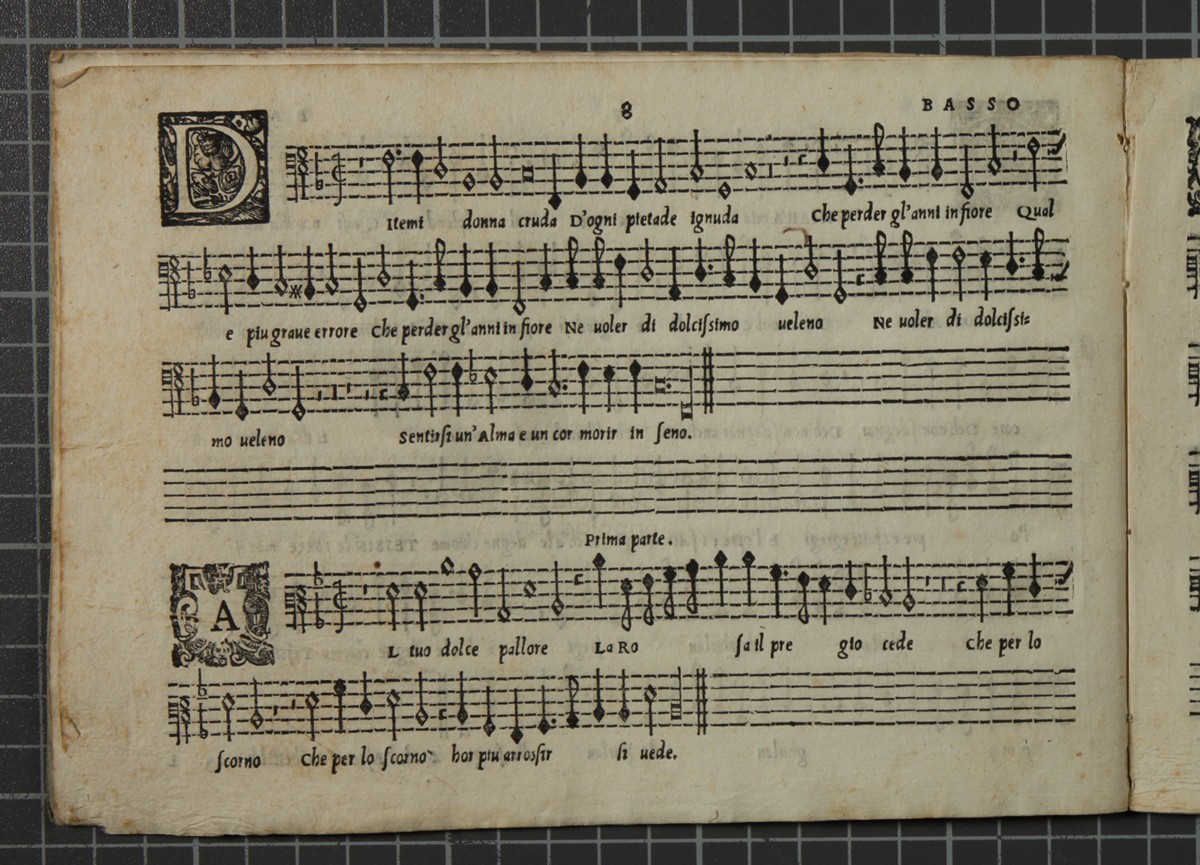 8 BASSO
DItemi donna cruda D'ogni pietade ignuda Che perder gl'anni in fiore Qual
e piu graue errore Che perder gl'anni in fiore Ne uoler di dolcißimo ueleno Ne uoler di dolcißi=
mo ueleno Sentirsi un'Alma e un cor morir in seno.
Prima parte.
AL tuo dolce pallore La Ro sa il pre gio cede Che per lo
scorno Che per lo scorno hor piu arrossir si uede.